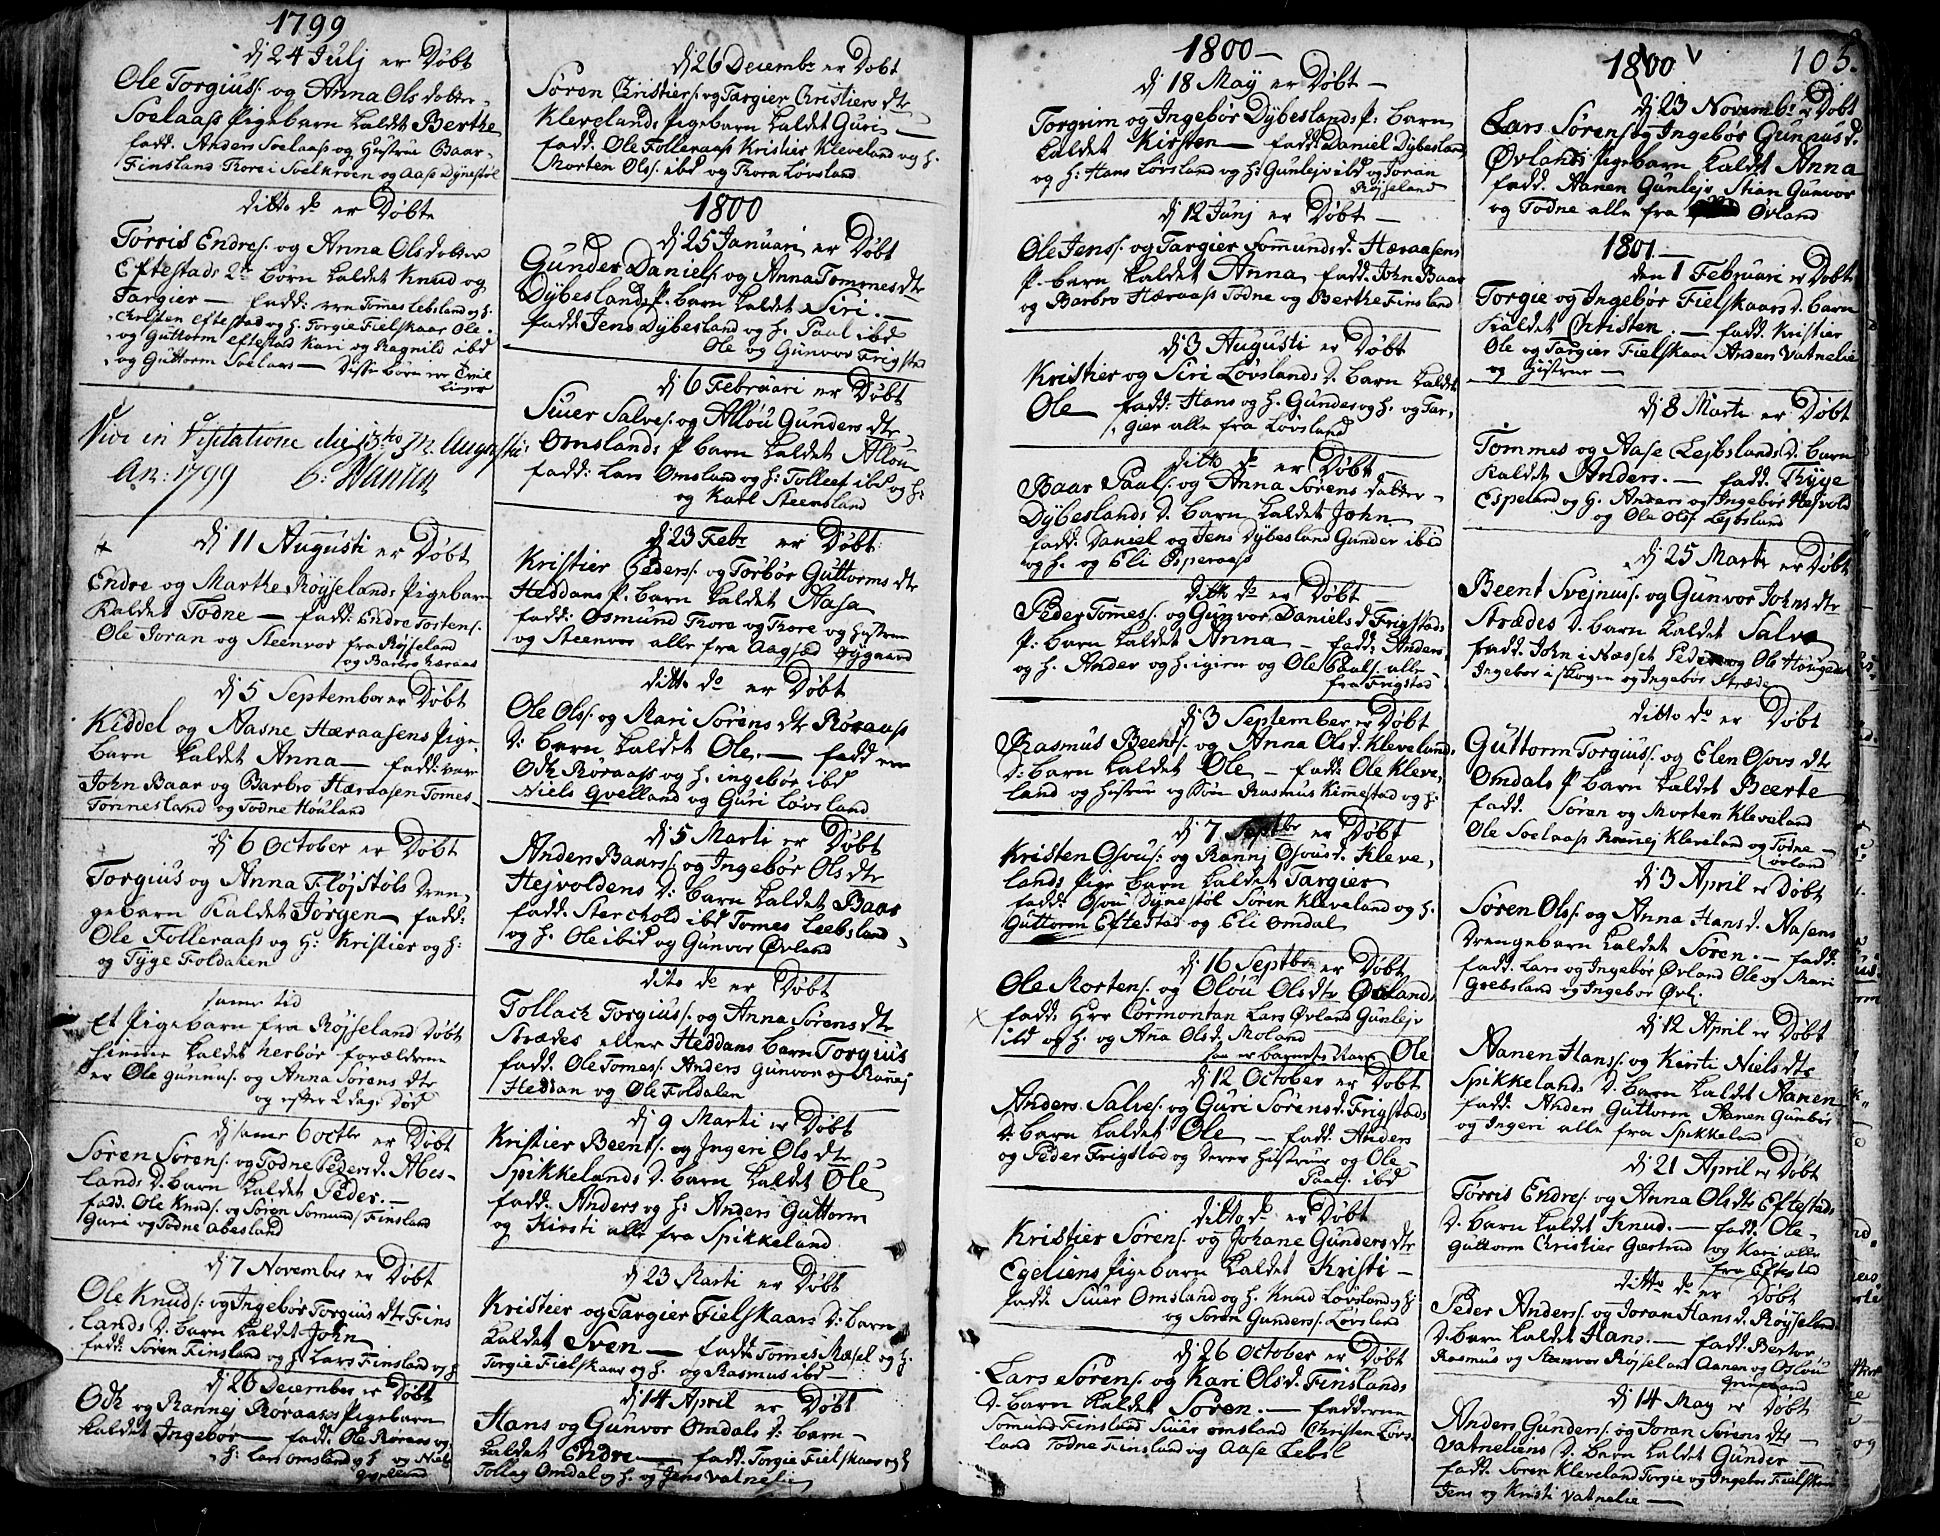 1799
dj 24 Julj er Døbt
Ole Torgiuss. og Anna Ols dotter
Soelaass Pigebarn kaldet Berthe
fadd. Anders Soelaass og Hustrue Baar
Finsland Thore i Soelkroen og Aase Dynestøl
ditto do er Døbte
Torris Endres. og Anna Olsdotter
Eftestads 2de børn kaldet Knud og
Targier — fadd: Tomes Lebsland og h.
Christen Eftestad og h. Torgie Fielskaar Ole
og Guttorm Eftestad Kari og Ragnild ibd
og Guttorm Soelaas — Disse børn er Tvil
linger
Vidi in Visitatione die 13tio M. Augusti
An: 1799
dj 11 Augusti er Døbt
Endre og Marthe Røyselands Pigebarn
Kaldet Todne — fadd: Endre Torstens.
Ole Joran og Steenvor fra Røyseland
og Barbro Hæraas
dj 5 September er Døbt
Kiddel og Aasne Hæraasens Pige
barn kaldet Anna — fadd: vare
John Baar og Barbro Hæraasen Tomes
Tonnesland og Todne Houland
dj 6 October er Døbt
Torgius og Anna Fløjstøls Dren
gebarn Kaldet Jørgen — fadd:
Ole Folleraass og H: Kristier og h:
og Tyge Foldalen
same tid
Et Pigebarn fra Røyseland Døbt
himme kaldet Herbør forældrene
er Ole Gunnus. og Anna Sørens dtr
og efter 2 dage Død
dj same 6 octbr er Døbt
Søren Sørens. og Todne Peders d. Abes
lands D. barn kaldet Peder. —
fadd. Ole Knuds. og Søren Somunds. Finsland
Guri og Todne Abesland
dj 7 November er Døbt
Ole Knuds. og Ingebør Torgius dtr Fins
lands D. barn kaldet John
fadd: Søren Finsland og h. Lars Finsland og h
dj 26 December er Døbt
Odk og Rannej Røraass Pigebarn
kaldet Ingebør — fadd. Ole Røraas og
h: Lars Omsland og h og Niels
Qvelland
dj 26 Decembr er Døbt
Søren Christiers. og Targier Christiers dtr
Klevelands Pigebarn kaldet Guri —
fadd. Ole Folleraass Kristier Kleveland og h.
Morten Ols. ibd og Thora Løvsland
1800
dj 25 Januari er Døbt
Gunder Daniels. og Anna Tommes dtr
Dybeslands P. barn kaldet Siri. —
fadd. Jens Dybesland og h. Paal ibd
Ole og Gunvor Frigstad
dj 6 Februari er Døbt
Siuer Salves. og Allou Gunders dtr
Omslands P barn kaldet Allou
fadd: Lars Omsland og h: Tollef ibd og h:
og Karl Steensland
dj 23 Febr er Døbt
Kristier Peders. og Torbør Guttorms dtr
Heddans P. barn kaldet Aasa
fadd: Osmund Thore og Thore og hustrue
og Steenvor alle fra Aagsød Øygaard
ditto do er Døbt
Ole Ols. og Mari Sørens dtr Røraass
D. barn kaldet Ole, — fadd er
Odk Røraass og h. ingebør ibd
Niels Qvelland og Guri Løvsland
dj 5 Marti er Døbt
Anden Baars. og Ingebør Ols dtr
Hejvoldens D: barn kaldet Baar
fadd. Sterchold ibd Tomes Leebsland
og h. Ole ibid og Gunvor Øvland
dito do er Døbt
Tollach Torgius. og Anna Sørens dtr
Strædes eller Heddans barn Torgius
fadd. Ole Tomes. Anders Gunvor og Rannej
Heddan og Ole Foldalen
dj 9 Marti er Døbt
Kristier Beents. og Ingeri Ols dtr
Spikkelands D. barn kaldet Ole
fadd. Anders og h: Anders Guttorm
og Kirsti alle fra Spikkeland
dj 23 Marti er Døbt
Kristier og Targier Fielskaars D. barn
kaldet Sven — fadd. Tomes Mæsel og h.
Torgie Fielskaar og h. og Rasmus ibd —
dj 14 April er Døbt
Hans og Gunvor Omdals D: barn
kaldet Endre — fadd. Torgie Fielskaar og h
Tollag Omdal og h. og Jens Vatnelie
1800 —
dj 18 May er Døbt —
Torgrim og Ingebør Dybeslands P. barn
kaldet Kirsten — fadd Daniel Dybesland
og h: Hans Løvsland og h: Gunlejv ibd og Joran
Røyseland
dj 12 Junj er Døbt —
Ole Jens. og Targier Somunds d. Hæraasens
P. barn kaldet Anna, fadd. John Baar
og Barbro Hæraass Todne og Berthe Finsland
dj 3 Augusti er Døbt
Kristier og Siri Løvslands D. barn kaldet
Ole — fadd: Hans og h. Gunder og h. og Tar
gier alle fra Løvsland
ditto do er Døbt —
Baar Paals. og Anna Sørens datter
Dybeslands D. barn kaldet John
fadd. Daniel og Jens Dybesland Gunder ibid
og h. og Eli Esperaass
ditto do er Døbt —
Peder Tomes. og Gunvor Daniels d. Frigstads
P. barn kaldet Anna — fadd. Anders
og h. Ander og h. igien og Ole Paals. alle
fra Frigstad
dj 3 September er Døbt
Rasmus Beents. og Anna Ols d. Klevelands
D: barn kaldet Ole — fadd: Ole Kleve
land og hustrue og Søn Rasmus Kimestad og h:
dj 7 Septbr er Døbt
Kristen Osous. og Rannj Osous d. Kleve
lands Pige barn kaldet Targier
fadd: Osou Dynestøl Søren Kleveland og h.
Guttorm Eftestad og Eli Omdal
dj 16 Septbr er Døbt
Ole Mortens. og Olou Ols dtr Øvlands
fadd. Herr Cormontan Lars Øvland Gunlejv
ibd og h. og Ana Ols d. Moland
saa er barnets Navn Ole
dj 12 October er Døbt
Anders Salves. og Guri Sørens d. Frigstads
D. barn kaldet Ole — fadd. Anders
og Peder Frigstad og deres hustruer og Ole
Paals. ibd
ditto do er Døbt
Kristier Sørens. og Johane Gunders dtr
Egeliens Pigebarn kaldet Kristi —
fadd. Siuer Omsland og h. Knud Løvsland og h
og Søren Gunders. Løvsland
dj 26 October er Døbt
Lars Sørens. og Kari Ols d. Finslands
D. barn kaldet Søren. — fadderne
Somund Finsland Siuer Omsland Christen Løvs
land Todne Finsland og Aase Lebsl
1800
105.
dj 23 Novembr er Døbt
Lars Sørens. og Ingebør Gunnus d.
Øvlands Pigebarn kaldet Anna
fadd. Aanen Gunlejv Stian Gunvor
og Todne alle fra Øvland
1801 —
den 1 Februari er Døbt
Torgie og Ingebør Fielskaars D. barn
kaldet Christen. — fadd. Kristier
Ole og Targier Fielskaar Anden Vatnelie
og hustrue —
dj 8 Marti er Døbt
Tommes og Aase Lejbslands D. barn
kaldet Anders. — fadd. Thyge
Espeland og h. Anders og Ingebør Hejvold
og Ole Ols. Lejbsland
dj 25 Marti er Døbt
Beent Svejnus. og Gunvor Johns dtr
Strædes D. barn kaldet Salve
fadd. John i Næsset Peder og Ole Hougen
Ingebor i Skogen og Ingebør Stræde
ditto do er Døbt
Guttorm Torgius. og Elen Osovs dtr
Omdals P barn kaldet Beerte
fadd. Søren og Morten Kleveland
Ole Soelaass Rannej Kleveland og Todne
Øvland
dj 3 April er Døbt
Søren Ols. og Anna Hans d. Aasens
Drengebarn kaldet Søren. — fadd:
fadd. Lars og Ingebør Øvland Ole og Mari
Grebsland og Ingebor Øvl.
dj 12 April er Døbt
Aanen Hans. og Kirsti Niels dtr
Spikkelands D. barn kaldet Aanen
fadd. Anders Guttorm Aanen Gunbør
og Ingeri alle fra Spikkeland
dj 21 April er Døbt
Torris Endres. og Anna Ols dtr Eftestads
D. barn kaldet Knud. — fadd. Ole
Guttorm Christier Giertrud og Kari alle
fra Eftestad
ditto do er Døbt
Peder Anders. og Joran Hans d. Røyselands
D. barn kaldet Hans. — fadd. Bertor
Rasmus og Steenvor Røyseland Aanen og Oslou
dj 14 May er Døbt
Anders Gunders. og Joran Sørens dtr —
Vatneliens D. barn kaldet Gunder —
fadd. Søren Kleveland Torgie og Ingebør Fielskaar
Jens og Kristi Vatnelie —